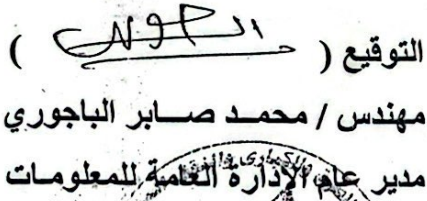 التوقيع ( )
مهندس / محمد صابر الباجوري
مدير عام الإدارة العامة للمعلومات